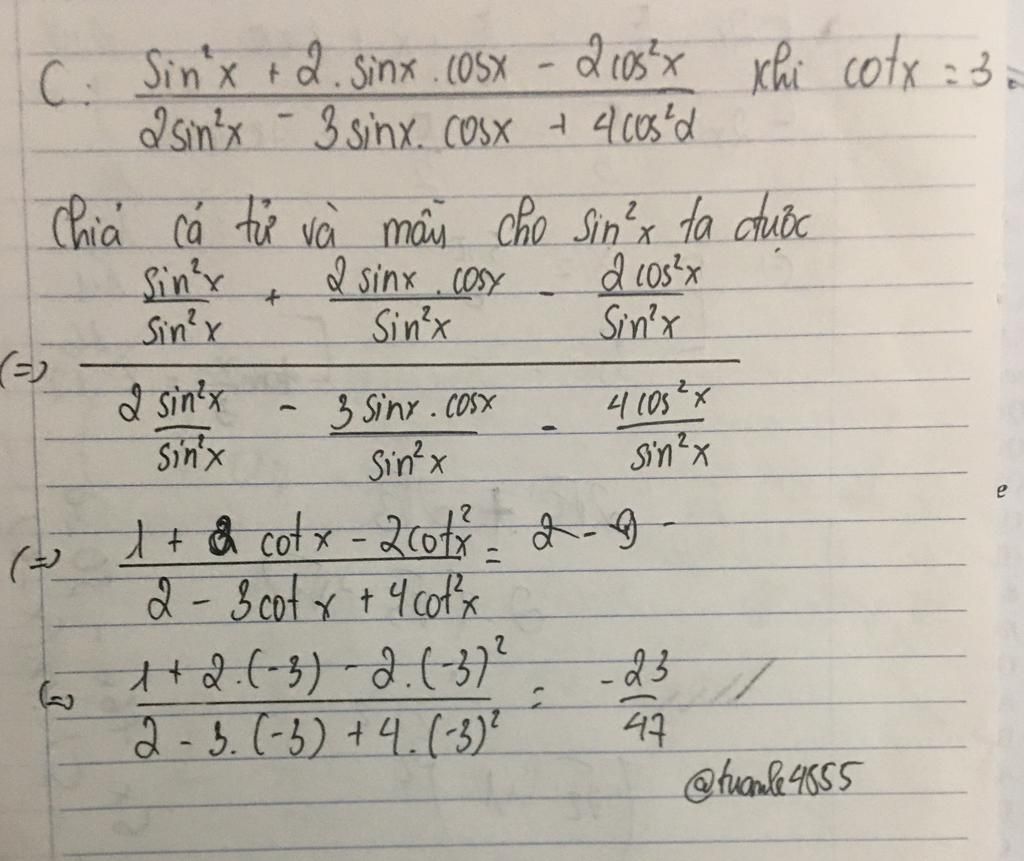 C: (sin²x + 2. sinx . cosx - 2cos²x) / (2sin²x - 3sinx. cosx + 4cos²d) khi cotx = 3
Chiả cả tử và mẫu cho sin²x ta được
(=) (sin²x/sin²x + 2 sinx . cosx/sin²x - 2 cos²x/sin²x) / (2 sin²x/sin²x - 3 sinx . cosx/sin²x - 4 cos²x/sin²x)
(=) (1 + 2 cotx - 2cot²x) / (2 - 3cotx + 4cot²x) = 2 - 9 -
(=) (1 + 2.(-3) - 2.(-3)²) / (2 - 3.(-3) + 4.(-3)²) = -23/47
@tuanle4855